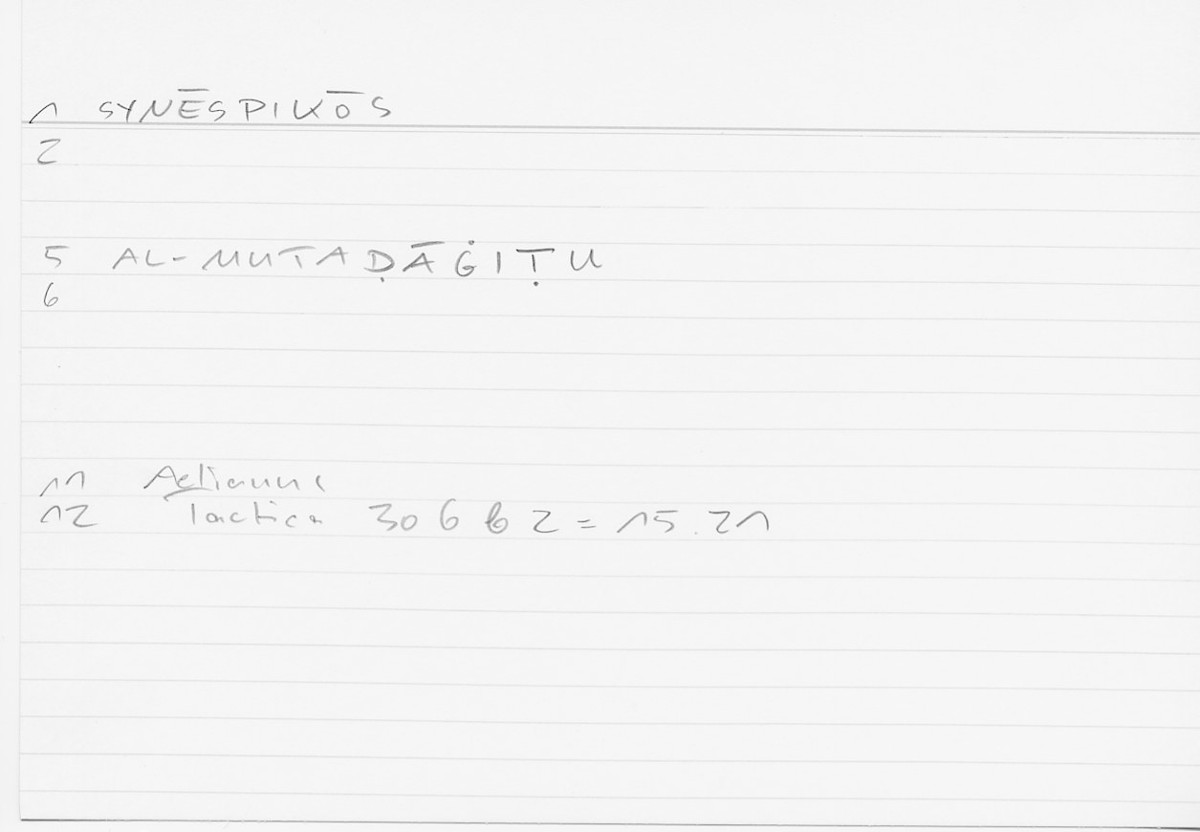 1 SYNĒSPIKŌS
2
5 AL-MUTAḌĀĠIṬU
6
11 Aelianus
12 Tactica 306 b 2 = 15.21